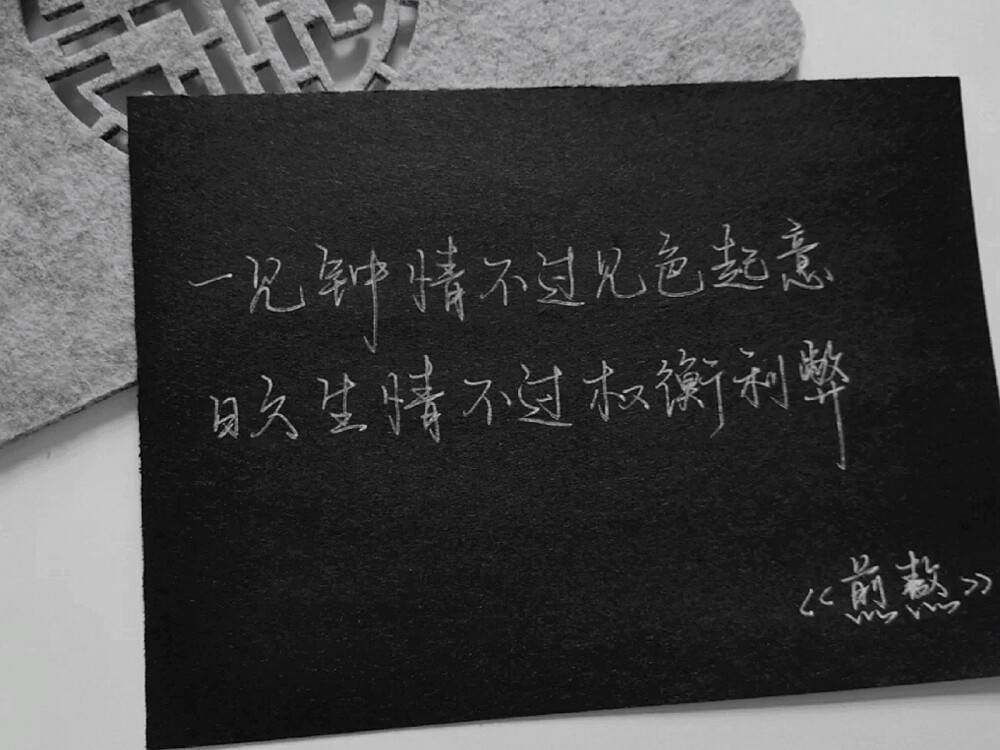 一见钟情不过见色起意
日久生情不过权衡利弊
《煎熬》